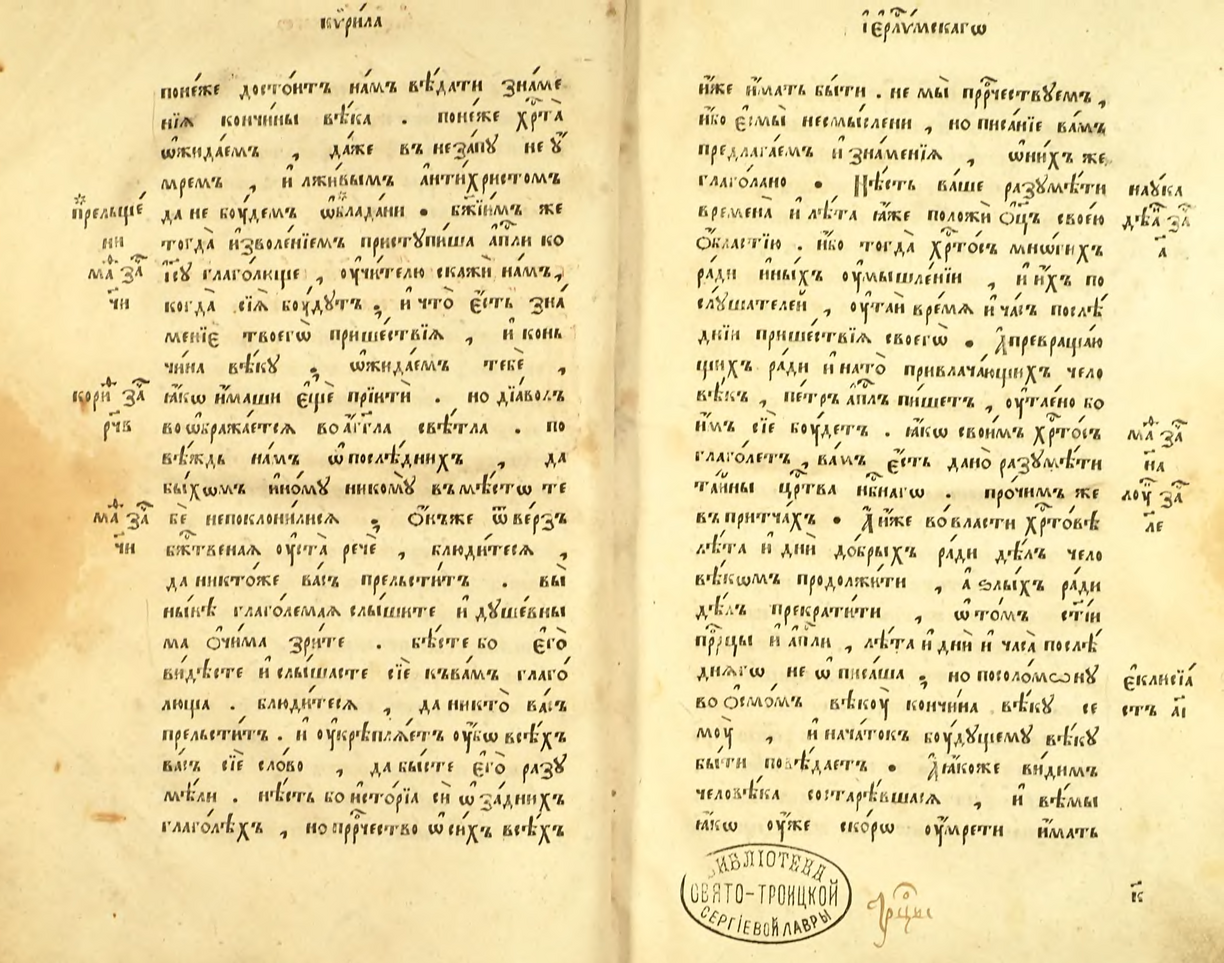 кѷри́ла
поне́же досто́итъ на́мъ вѣ́дати зна́ме
нїѧ кончи́ны вѣ́ка . поне́же хрⷭ҇та̀
ѡ҆жида́емъ , да́же въ неза́пꙋ не ᲂу҆
мрем̀ъ , и҆ лжи́вымъ а҆нтихристомъ
прельще́
да не бꙋ́демъ ѡ҆блада́ни . бж҃їимъ же
ни
тогда̀ и҆зволе́нїемъ пристꙋпи́ша а҆пⷭ҇ли ко
маⷴ҇ заⷱ҇
і҆с꙽ꙋ глаго́люще , ᲂу҆чи́телю скажѝ на́мъ ,
чи
когда̀ сїѧ̀ бꙋ́дꙋтъ ; и҆ что̀ є҆́сть зна́
менїе твоегѡ̀ прише́ствїѧ , и҆ конь
чи́на вѣ́кꙋ . ѡ҆жида́емъ тебѐ ,
кориⷴ҇ заⷱ҇
ꙗ҆́кѡ и҆́маши є҆щѐ прїитѝ . но дїа́волъ
рчв
воѡбража́етсѧ во а҆́гг҃ла свѣ́тла . по
вѣ́ждь на́мъ ѡ҆ послѣ́днихъ , да
бы́хомъ и҆но́мꙋ нико́мꙋ въ мѣ́стѡ те
маⷴ҇ заⷱ҇
бѐ непоклони́лисѧ ; ѻ҆́нъже ѿве́рзъ
чи
бжⷭ҇твенаѧ ᲂу҆ста̀ речѐ , блюди́тесѧ ,
да никто́же ва́съ прельсти́тъ . вы̀
ны́нѣ глаго́лемаѧ слы́шите и҆ дꙋше́вны
ма ѻ҆чи́ма зри́те . нѣ́сте бо є҆го̀
ви́дѣсте и҆ слы́шасте сїѐ къ ва́мъ глаго́
люща . блюди́тесѧ , да никто̀ ва́съ
прельсти́тъ . и҆ ᲂу҆крѣплѧ́етъ ᲂу҆́бѡ всѣ́хъ
ва́съ сїѐ сло́во , да бы́сте є҆го̀ разꙋ
мѣ́ли . нѣ́сть бо и҆сто́рїа сѝ ѡ҆ за́днихъ
глаго́лѣхъ , но прⷪ҇рчество ѡ҆ си́хъ всѣ́хъ
і҆ерⷭ҇лѵ́мскагѡ
и҆́же и҆́мать бы́ти . не мы̀ прⷪ҇рчествꙋемъ ,
и҆́бо є҆смы̀ несмы́слени , но писа́нїе ва́мъ
предлага́емъ и҆ зна́менїѧ , ѡ҆ ни́хъ же
глаго́лано . Нѣ́сть ва́ше разꙋмѣ́ти
наꙋка
времена̀ и҆ лѣ́та ꙗ҆́же положѝ ѻ҆ц҃ъ свое́ю
дѣаⷩ҇ заⷱ҇
ѻ҆́бластїю . и҆́бо тогда̀ хрⷭ҇то́съ мно́гихъ
а
ра́ди и҆ны́хъ ᲂу҆мышле́нїи , и҆ и҆́хъ по
слꙋ́шателей , ᲂу҆таѝ вре́мѧ и҆ ча́съ послѣ́
днїи прише́ствїѧ своегѡ̀ . А҆ превраща́ю
щихъ ра́ди и҆ на то̀ привлача́ющихъ чело
вѣ́къ , пе́тръ а҆пⷭ҇лъ пи́шетъ , ᲂу҆тае́но бо
и҆́мъ сїѐ бꙋ́детъ . ꙗ҆́кѡ свои́мъ хрⷭ҇то́съ
маⷴ҇ заⷱ҇
глаго́летъ , ва́мъ є҆́сть дано̀ разꙋмѣ́ти
на
та́йны црⷭ҇тва нбⷭ҇нагѡ . про́чимъ же
лоꙋ заⷱ҇
въ при́тчахъ . А҆ и҆́же во вла́сти хрⷭ҇то́вѣ
ле
лѣ́та и҆ днѝ до́брыхъ ра́ди дѣ́лъ чело
вѣ́кѡмъ продолжи́ти , а҆ ѕлы́хъ ра́ди
дѣ́лъ прекрати́ти , ѡ҆ то́мъ ст҃і́и
прⷪ҇рцы и҆ а҆пⷭ҇ли , лѣ́та и҆ днѝ и҆ часа̀ послѣ́
днѧгѡ не ѡ҆писа́ша ; но по соломѡ́нꙋ
є҆клисїа́
во ѻ҆смо́мъ вѣ́кꙋ кончи́на вѣ́кꙋ се
стъ аі
мꙋ̀ , и҆ нача́токъ бꙋ́дꙋщемꙋ вѣ́кꙋ
бы́ти повѣ́даетъ . А҆ ꙗ҆́коже ви́димъ
человѣ́ка состарѣ́вшасѧ , и҆ вѣ́мы
ꙗ҆́кѡ ᲂу҆же ско́рѡ ᲂу҆мре́ти и҆́мать
к
БИБЛІОТЕКА
СВЯТО-ТРОИЦКОЙ
СЕРГІЕВОЙ ЛАВРЫ